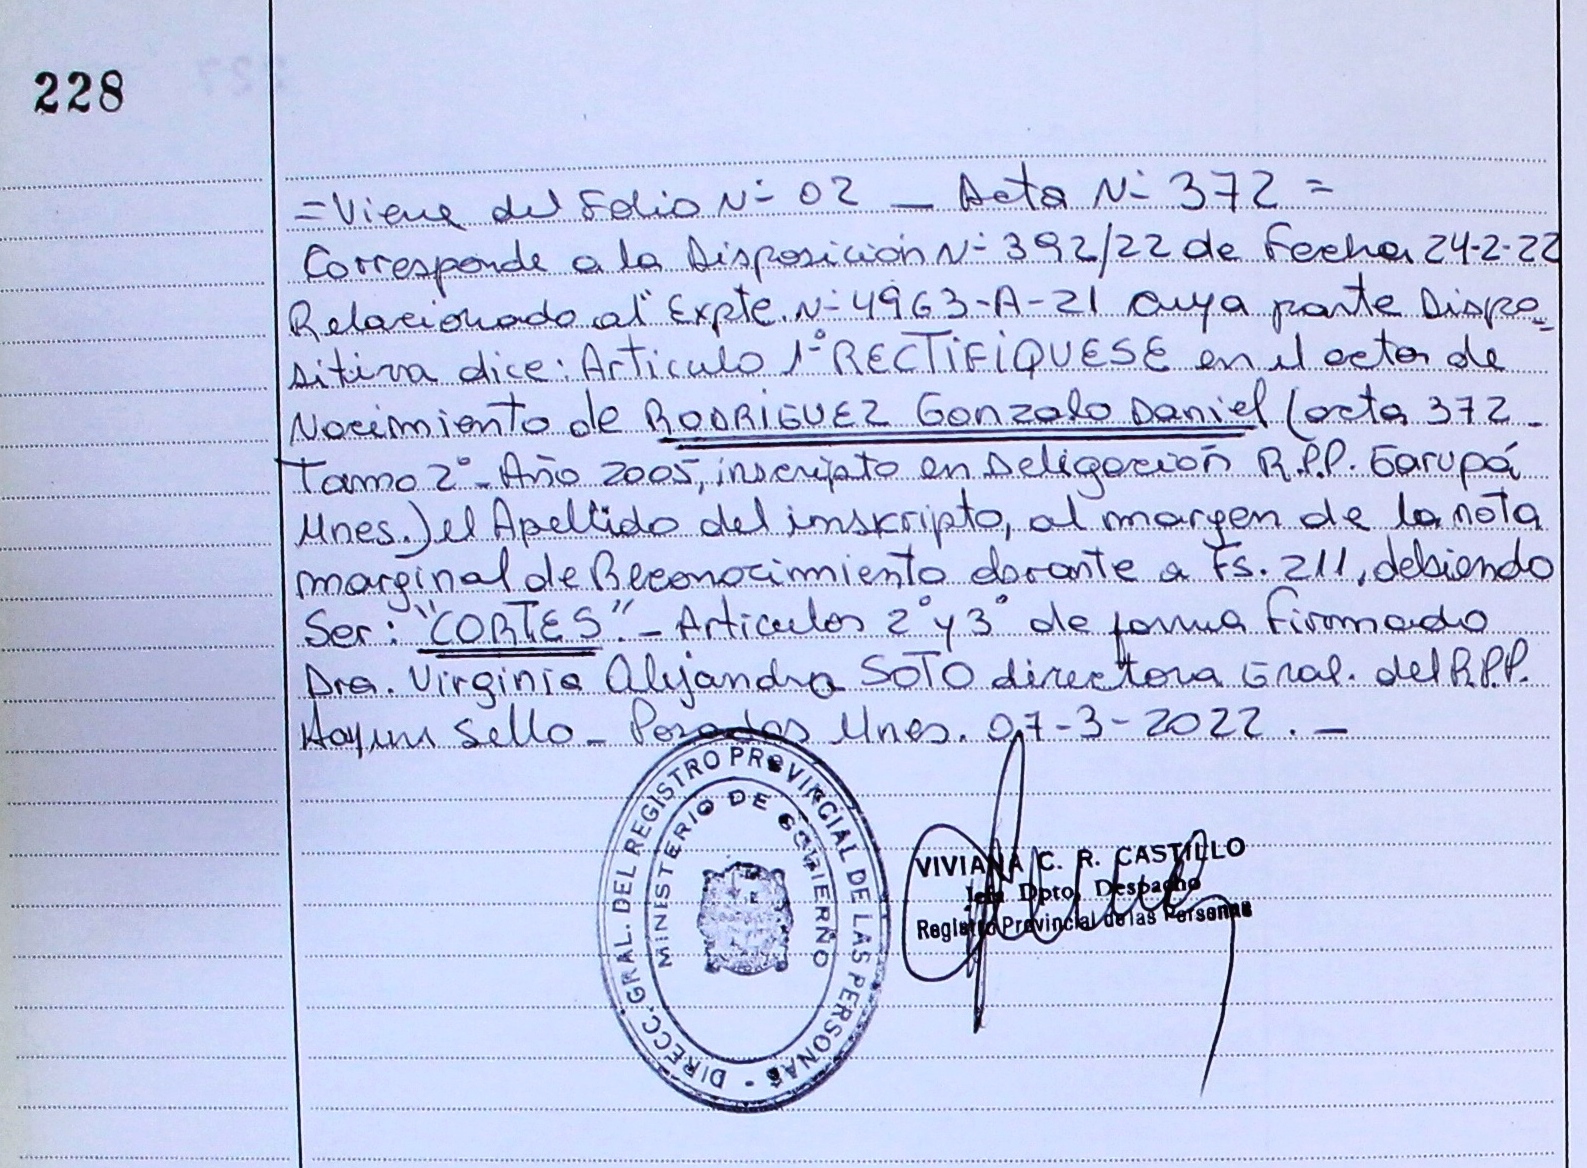 228
=Viene del Folio Nº 02 _ Acta Nº 372 =
Corresponde a la Disposición Nº 392/22 de Fecha 24-2-22
Relacionado al Expte. Nº 4963-A-21 cuya parte Dispo-
sitiva dice: Articulo 1º RECTIFIQUESE en el acta de
Nacimiento de RODRIGUEZ Gonzalo Daniel (acta 372-
Tomo 2º- Año 2005, inscripto en Delegación R.P.P. Garupá
Mnes.) el Apellido del inskripto, al margen de la nota
marginal de Reconocimiento obrante a Fs. 211, debiendo
Ser: "CORTES".- Articulos 2º y 3º de forma firmado
Dra. Virginia Alejandra SOTO directora Gral. del R.P.P.
Hay un Sello_ Posadas Mnes. 07-3-2022. _
DIRECC. GRAL. DEL REGISTRO PROVINCIAL DE LAS PERSONAS -
MINISTERIO DE GOBIERNO
VIVIANA C. R. CASTILLO
Jefa Dpto. Despacho
Registro Provincial de las Personas